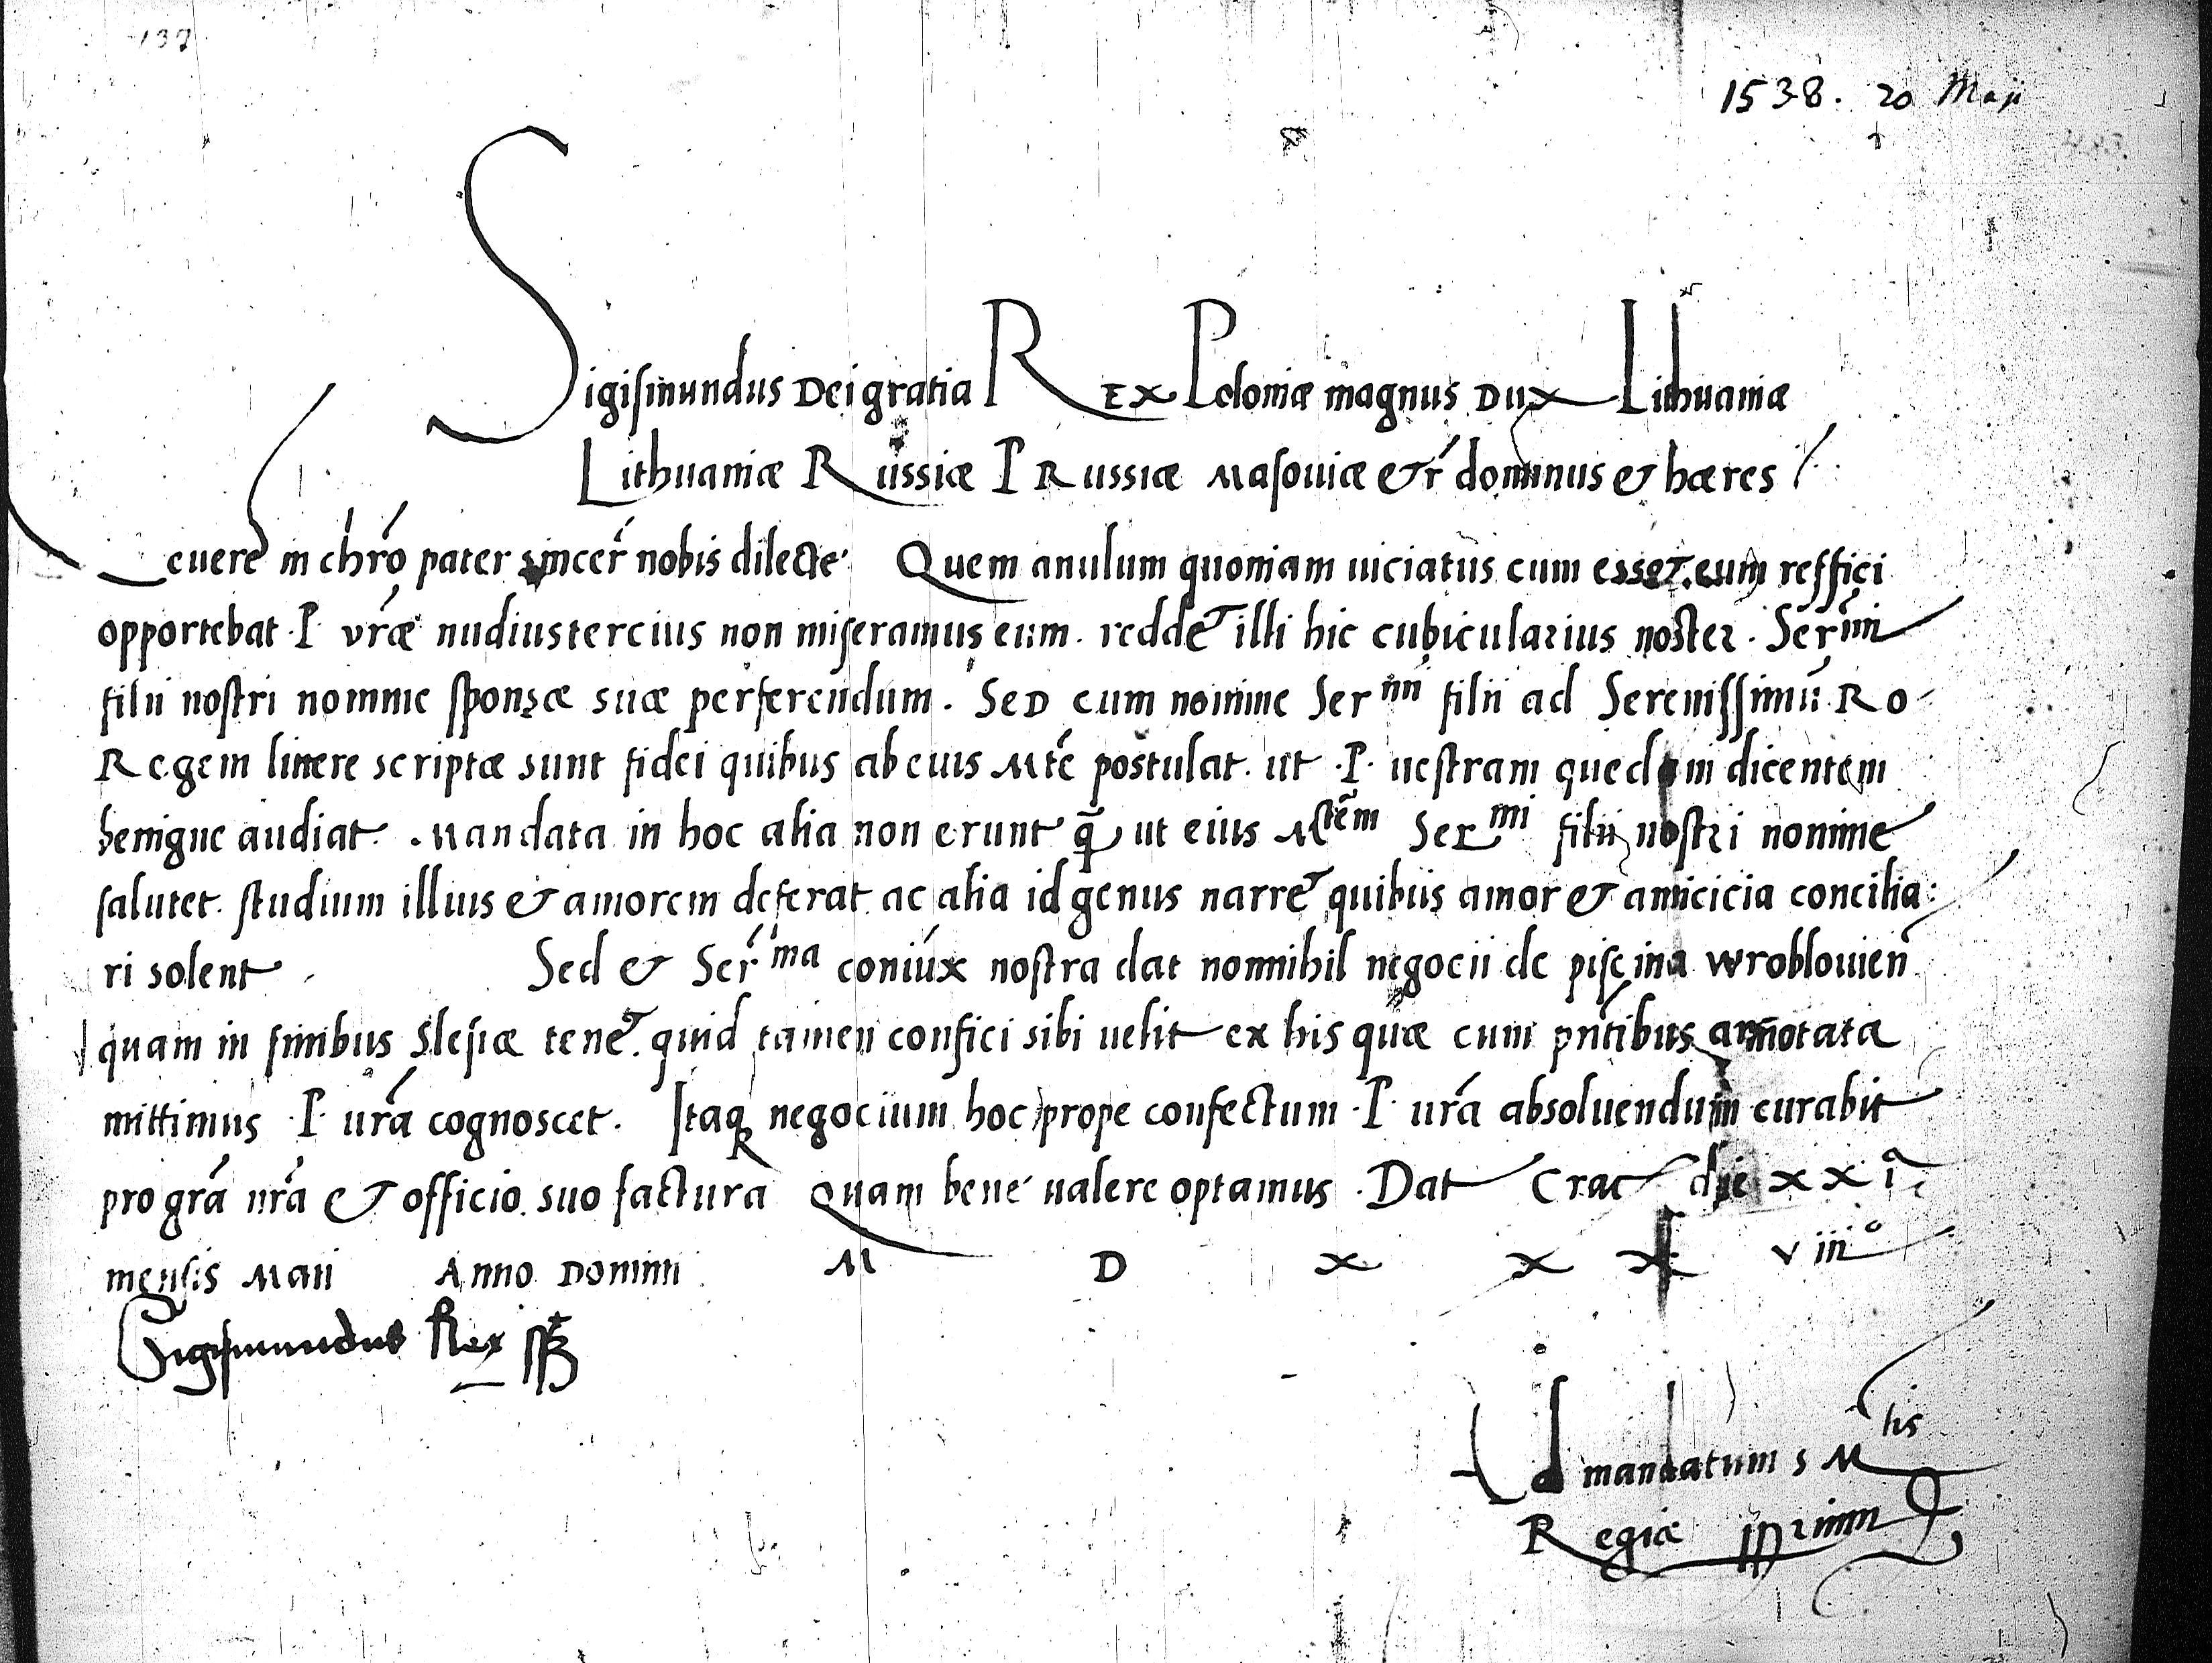 137
1538. 20 Maji
Sigismundus Dei gratia Rex Poloniæ magnus Dux Lithuaniæ
Lithuaniæ Russiæ Prussiæ Masouiæ &r̃ dominus & hæres
Reuere in chr̃o pater sincer̃ nobis dilecte Quem anulum quoniam uiciatus cum esset eum reffici
opportebat P. vr̃æ nudiustercius non miseramus eum. reddet illi hic cubicularius noster. Ser̃mi
filii nostri nomine sponsæ suæ perferendum. Sed cum nomine Sermi filii ad Serenissimũ Ro
Regem littere scriptæ sunt fidei quibus ab euis Mte postulat. ut .P. uestram quedam dicentem
benigne audiat. Mandata in hoc alia non erunt q̃ ut eius Mtẽm Sermi filii nostri nomine
salutet. studium illius & amorem deferat. ac alia id genus narret quibus amor & amicicia concilia:
ri solent Sed & Ser̃ma coniux nostra dat nonnihil negocii de piscina wroblouien̄
quam in finibus Slesiæ tenet. quid tamen confici sibi uelit ex his quæ cum pñtibus annotata
mittimus .P. ur̃a cognoscet. Itaq negocium hoc prope confectum .P. ur̃a absoluendum curabit
pro gr̃a nr̃a & officio suo factura Quam bene ualere optamus. Dat Crac die xxi
mensis Maii Anno Domini M D x x x viiio
Sigismundus Rex sst
Ad mandatum S Mtis
Regiæ